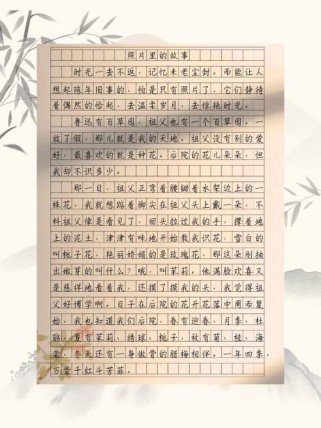 照片里的故事
时光一去不返，记忆未老尘封。而能让人
想起陈年旧事的，怕是只有照片了，它们静待
着偶然的拾起，去温柔岁月，去惊艳时光。
鲁迅有百草园，祖父也有一个百草园。一
放了假，那儿就是我的天地。祖父没有别的爱
好，最喜欢的就是种花。后院的花儿朵朵，但
我却不识多少。
那一日，祖父正弯着腰侧着水架边上的一
株花，我就想踮着脚尖在祖父头上戴一朵，不
料祖父像是看见了，回头拉过我的手，撑着地
上的泥土，津津有味地开始教我识花：雪白的
叫桃子花，艳丽娇媚的是玫瑰花，那这朵刚抽
出嫩芽的叫什么？哦，叫茉莉。他满脸欢喜又
是慈祥地看着我，还摸了摸我的头，我觉得祖
父好博学啊。日子在后院的花开花落中周而复
始，我也知道我们后院，春有迎春、月季、杜
鹃，夏有茉莉、绣球、栀子，秋有菊、桂、海
棠，冬天还有一身傲骨的腊梅相伴。一年四季，
万紫千红斗芳菲。